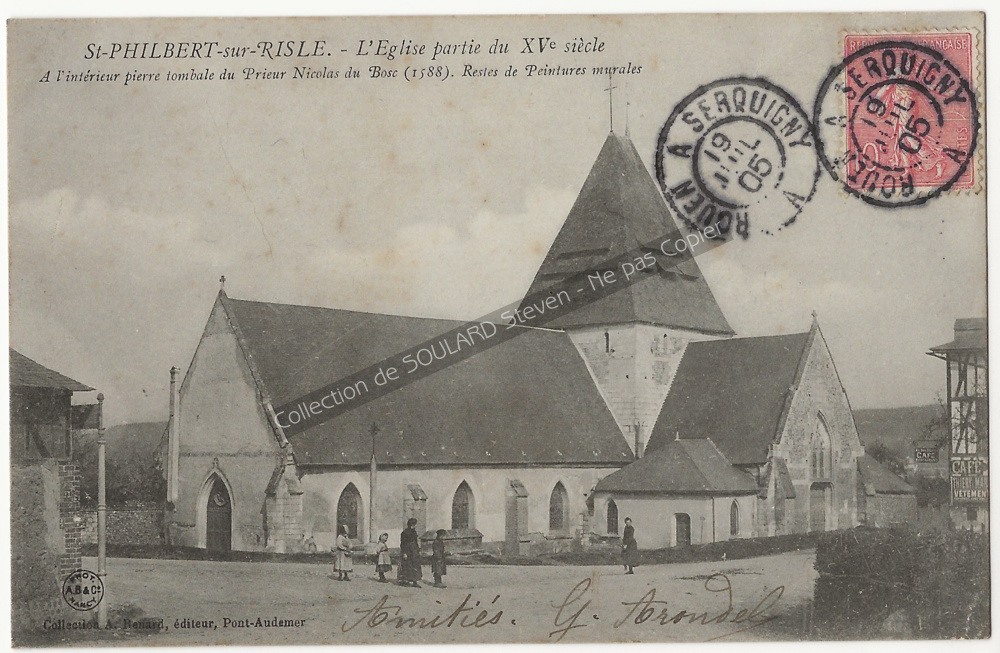 St-PHILBERT-sur-RISLE. - L'Eglise partie du XVe siècle
A l'intérieur pierre tombale du Prieur Nicolas du Bosc (1588). Restes de Peintures murales
ROUEN A SERQUIGNY A
19
JUIL
05
ROUEN A SERQUIGNY A
19
JUIL
05
FRANÇAISE
Collection de SOULARD Steven - Ne pas Copier
CAFÉ
CAFÉ
VÊTEMENT
PHOT.
A.B & Cie
NANCY
Collection A. Renard, éditeur, Pont-Audemer
Amitiés. G. Arondel